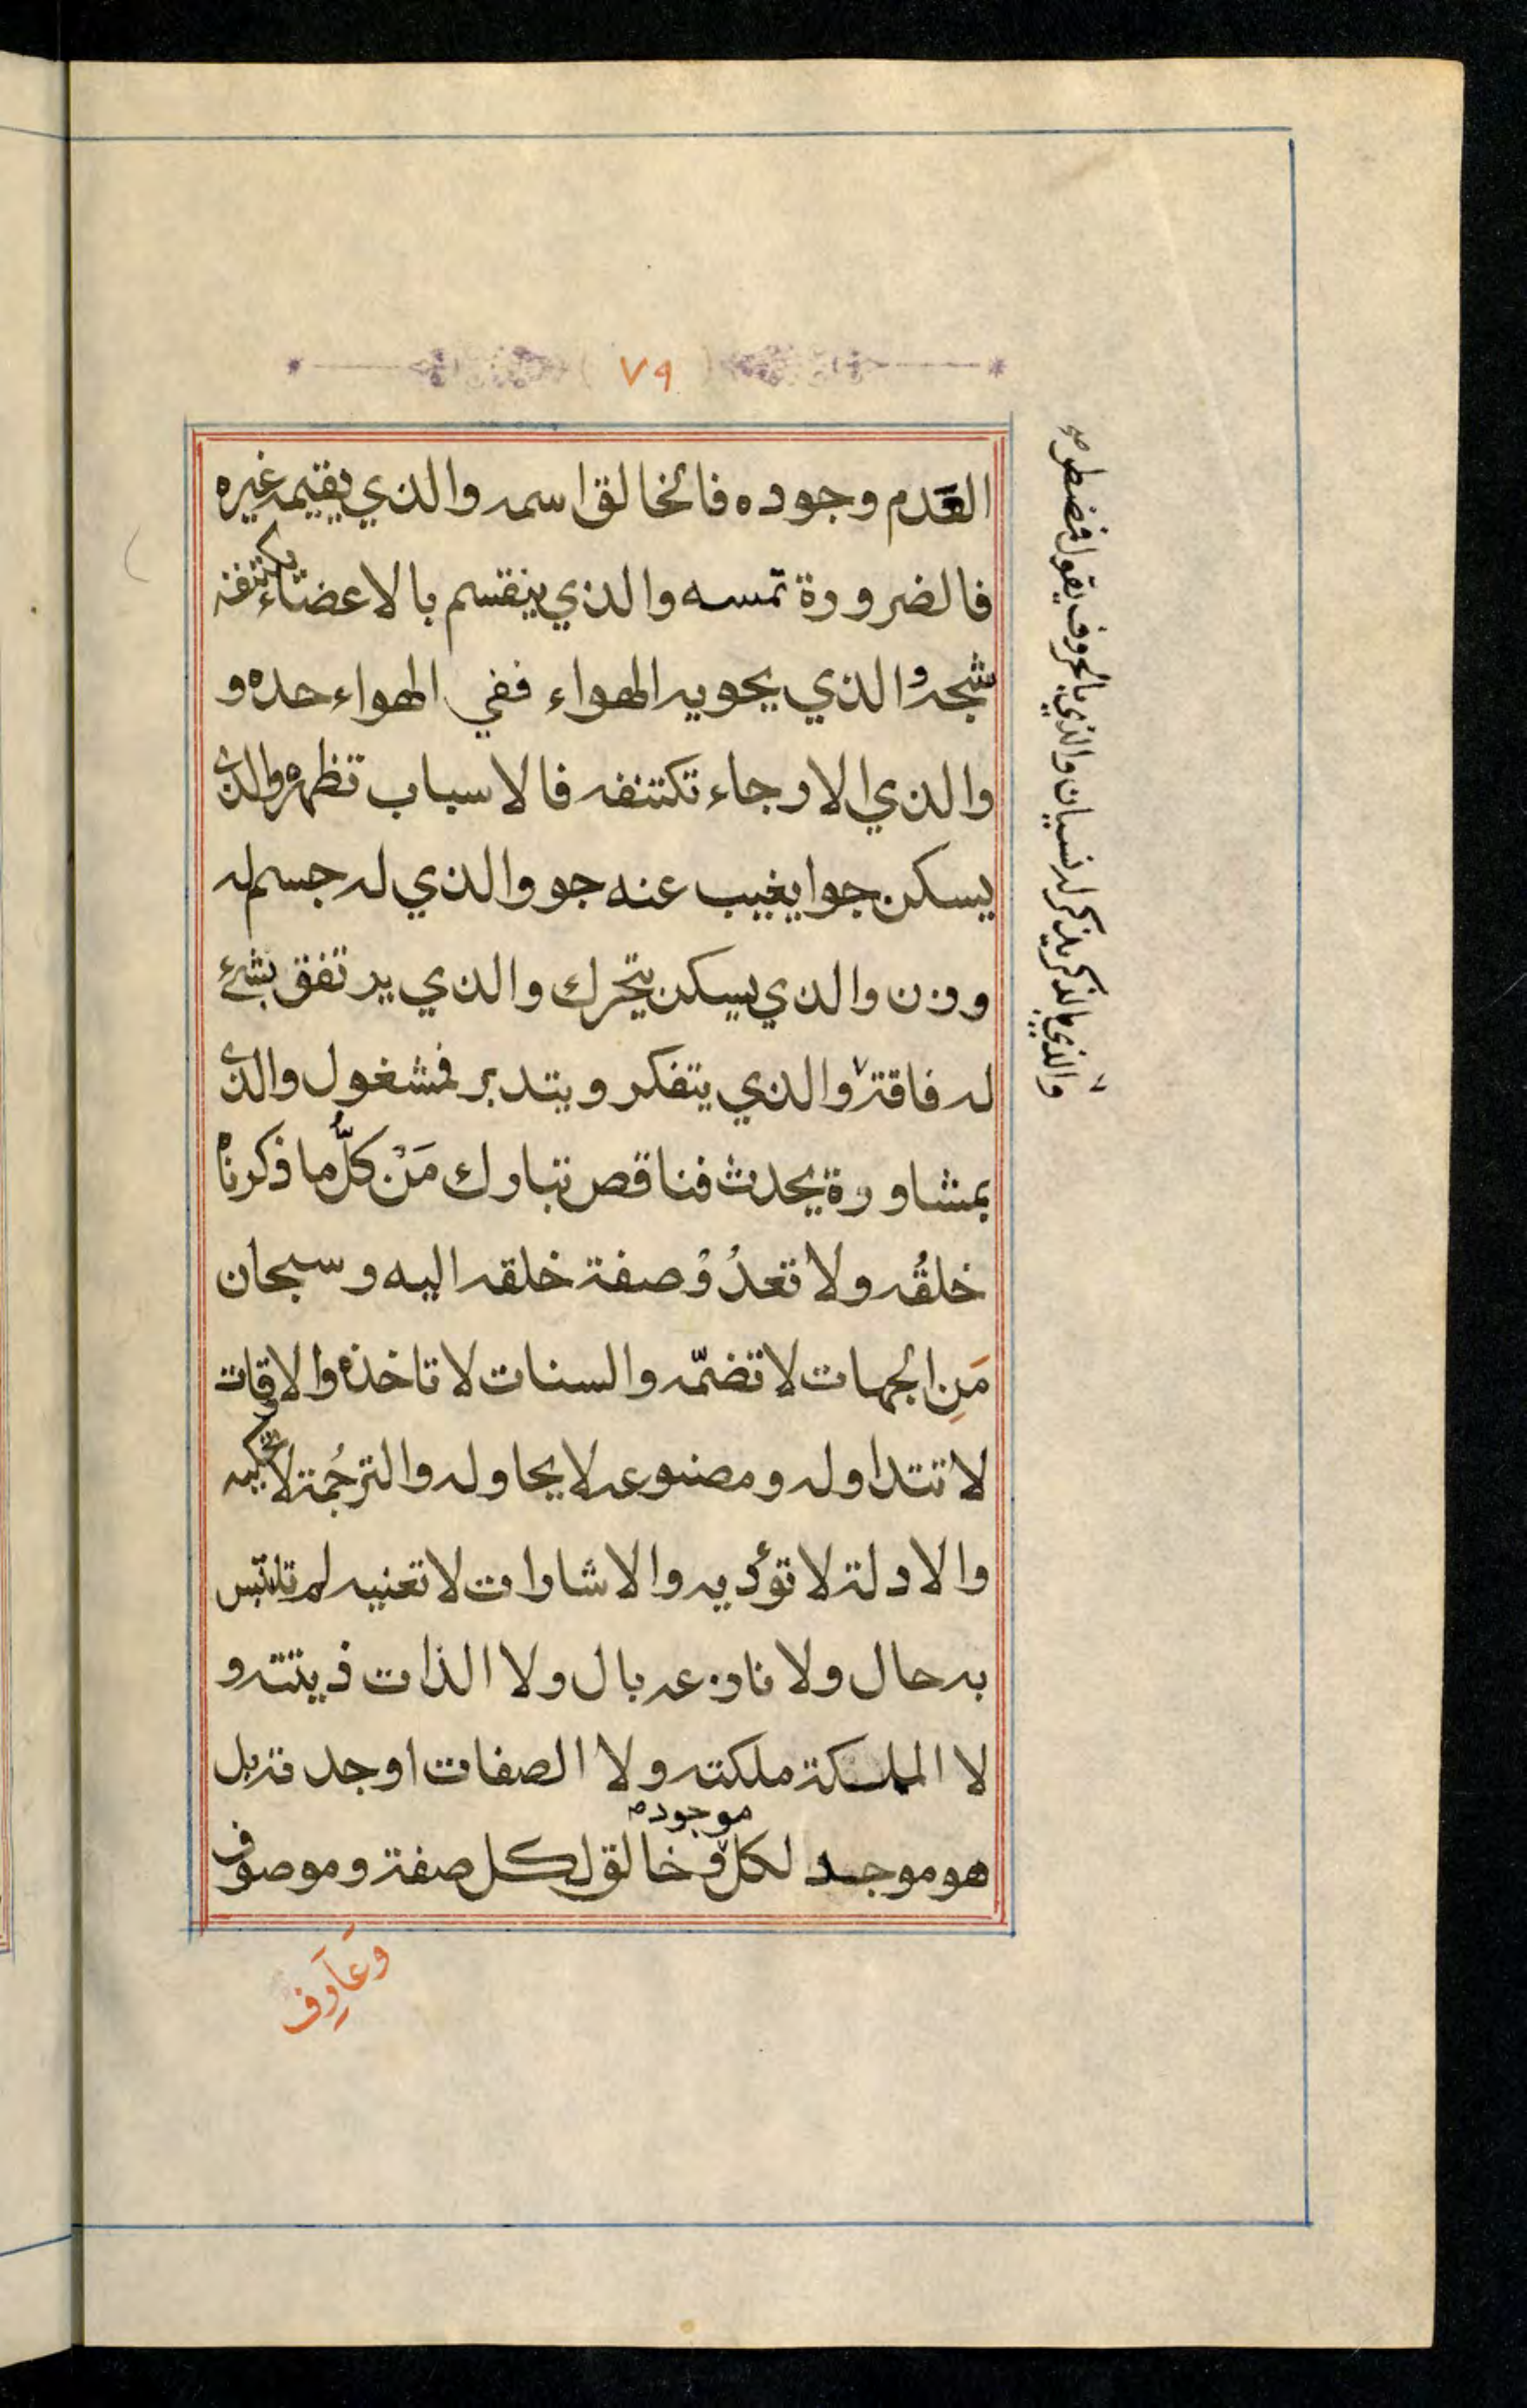 ٧٩
العَدم وجوده فالخالق اسمه والذي يقيمه غيره
فالضرورة تمسه والذي ينقسم بالاعضاء يكتنفه
شجه والذي يحويه الهواء ففي الهواء حده و
والذي الارجاء تكتنفه فالاسباب تظهره والذى
يسكن جوا يغيب عنه جو والذي له جسم له
وزن والذي يسكن يتحرك والذي يرتفق بشئ
له فاقة والذي يتفكر ويتدبر فمشغول والذى
بمشاورة يحدث فناقص تبارك مَنْ كلُّ ما ذكرناه
خلقُه ولا تعدُوْ صفة خلقه اليه وسبحان
مَنِ الجهات لا تضمّه والسنات لا تاخذه والاوقات
لا تتداوله ومصنوعه لا يحاوله والترجُمة لا تحكيه
والادلة لا تؤديه والاشارات لا تعنيه لم تلتبس
به حال ولا نازعه بال ولا الذات ذيتته و
لا الملكة ملكته ولا الصفات اوجدته بل
هو موجد لكل موجود وخالق لكل صفة وموصوف
وَعَارِف
والذي بالذكر يذكر له نسيان والذي بالحروف يقول فمضطر صح